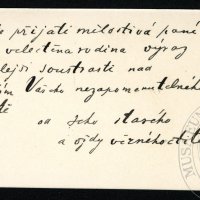 přijati milostivá paní
velectěná rodina výraz
nejší soustrasti nad
Vašeho nezapomenutelného
od Jeho starého
a vždy věrného ctitele
MUSEUM